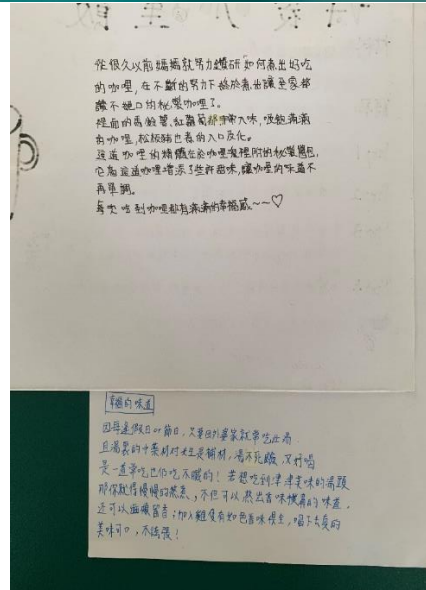 從很久以前媽媽就努力鑽研如何煮出好吃
的咖哩,在不斷的努力下終於煮出讓全家都
讚不絕口的秘製咖哩了。
裡面的馬鈴薯、紅蘿蔔都非常入味,吸飽滿滿
的咖哩,松板豬也煮的入口及化。
這道咖哩的精髓在於咖哩塊裡附的秘製醬包,
它為這道咖哩增添了些許甜味,讓咖哩的味道不
再單調。
每次吃到咖哩都有滿滿的幸福感~~♡
幸福的味道
因每逢假日or節日,只要回外婆家就常吃此湯
且湯裏的中藥材對女生是補材,湯不死鹹又好喝
是一直常吃也仍吃不膩的!若想吃到津津美味的湯頭
那你就得慢慢的熬煮,不但可以熬出香味撲鼻的味道,
還可以齒頰留香;加入雞隻有如色香味俱全,喝下去真的
美味可口,不誇張!